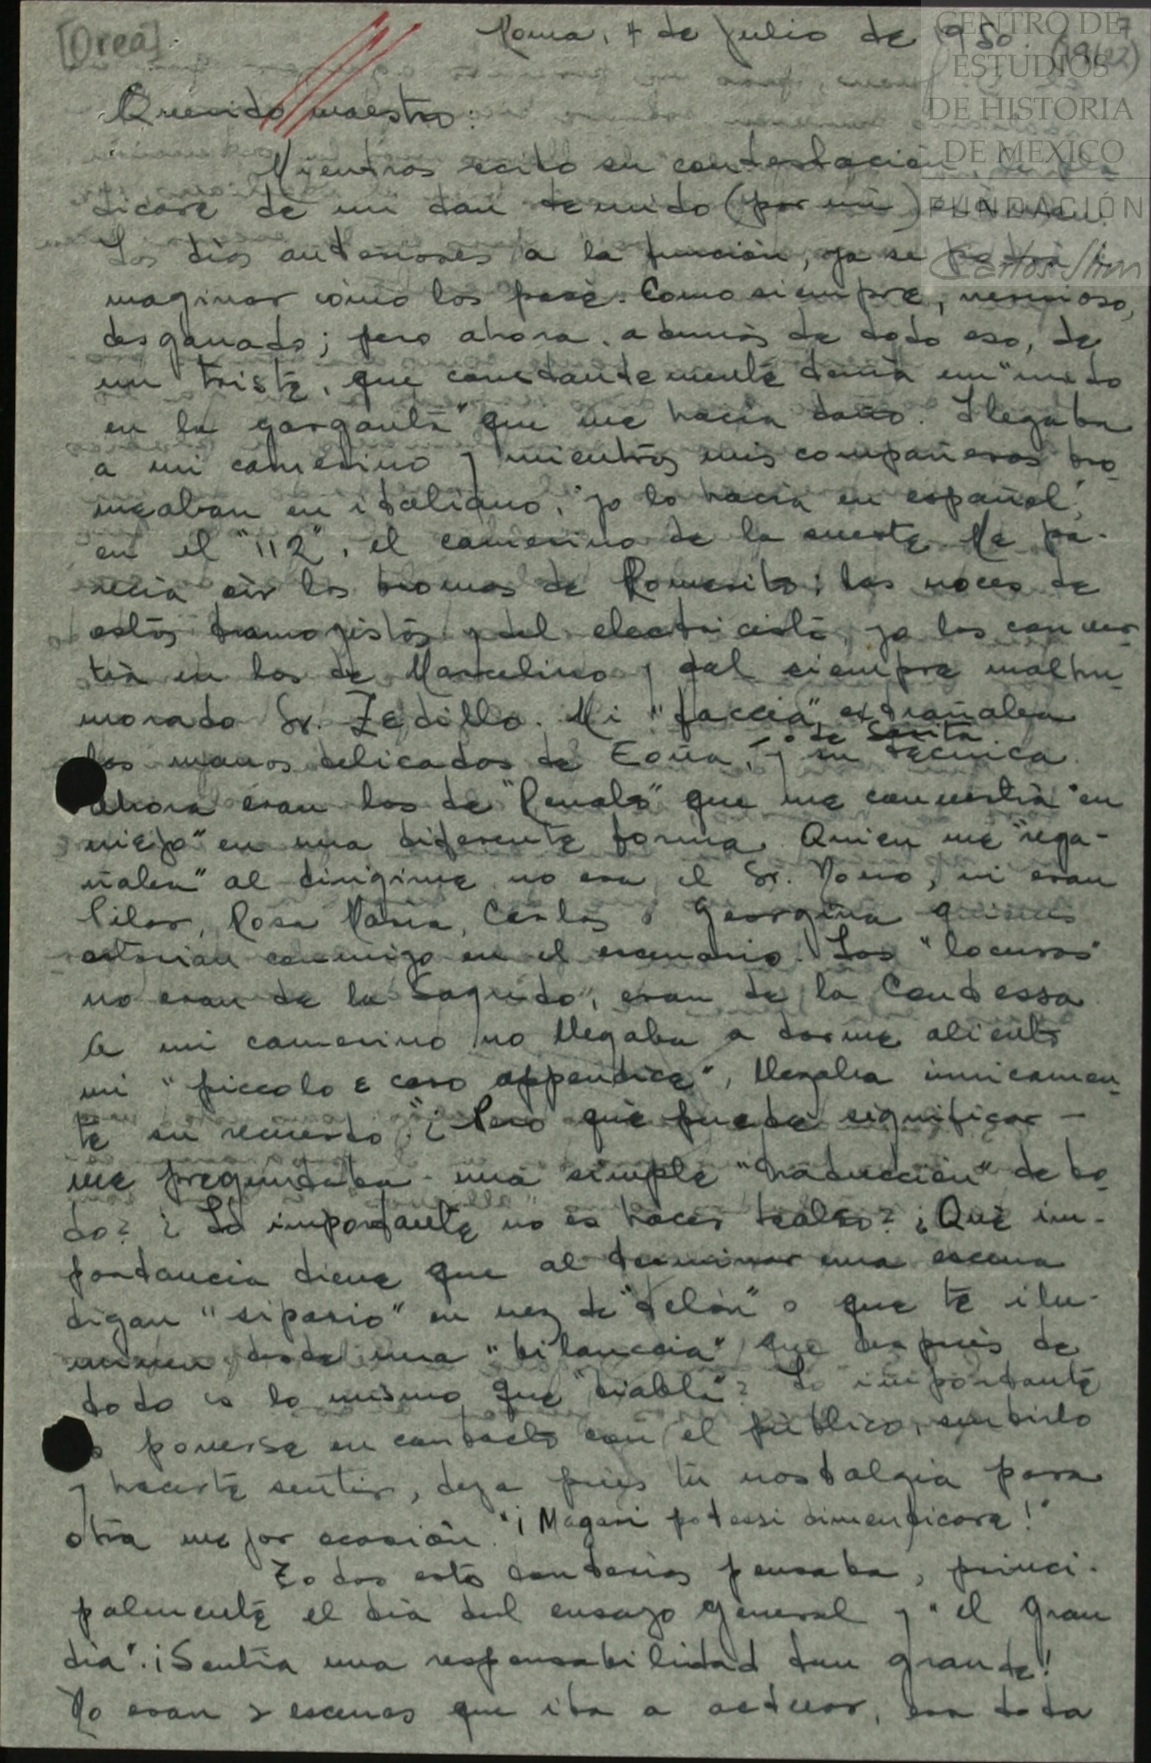 [Orea]
Roma, 4 de Julio de 950.
CENTRO DE
ESTUDIOS
DE HISTORIA
DE MEXICO
FUNDACIÓN
Carlos Slim
Querido maestro:
Mientras recibo su contestación, le pla
ticaré de mi tan temido (por mi)
Los días anteriores a la función, ya se podrá i
maginar cómo los pasé. Como siempre, nervioso,
desganado; pero ahora, además de todo eso, de
un triste, que constantemente tenía un "nudo
en la garganta" que me hacía daño. Llegaba
a mi camerino y mientras mis compañeros bro
meaban en italiano, "yo lo hacía en español",
en el "112", el camerino de la suerte. Me pa-
recía oír las bromas de Romerito; las voces de
estos tramoyistas y del electricista, yo las conver
tía en las de Marcelino y del siempre malhu-
morado Sr. Zedillo. Mi "faccia", extrañaba
las manos delicadas de Eoña, y su técnica
o de Sarita
ahora eran las de "Renato" que me convertía "en
viejo" en una diferente forma. Quien me "rega-
ñaba" al dirigirme no era el Sr. Novo, ni eran
Pilar, Rosa María, Carlos o Georgina quienes
estarían conmigo en el escenario. Las "locuras"
no eran de la "Sagrido", eran de la Contessa
A mi camerino no llegaba a darme aliento
mi "piccolo e caro appendice", llegaba unicamen-
te su recuerdo. "¿Pero qué puede significar -
me preguntaba - una simple "traducción" de to
do? ¿Lo importante no es hacer teatro? ¿Qué im-
portancia tiene que al terminar una escena
digan "sipario" en vez de "telón" o que te ilu-
minen desde una "bilanccia" que después de
todo es lo mismo que "diabla"? Lo importante
es ponerse en contacto con el público, sentirlo
y hacerte sentir, deja pues tu nostalgia para
otra mejor ocasión. "¡Magari potessi dimenticare!"
Todas estas tonterías pensaba, princi-
palmente el día del ensayo general y "el gran
día". ¡Sentía una responsabilidad tan grande!
No eran 2 escenas que iba a actuar, era toda